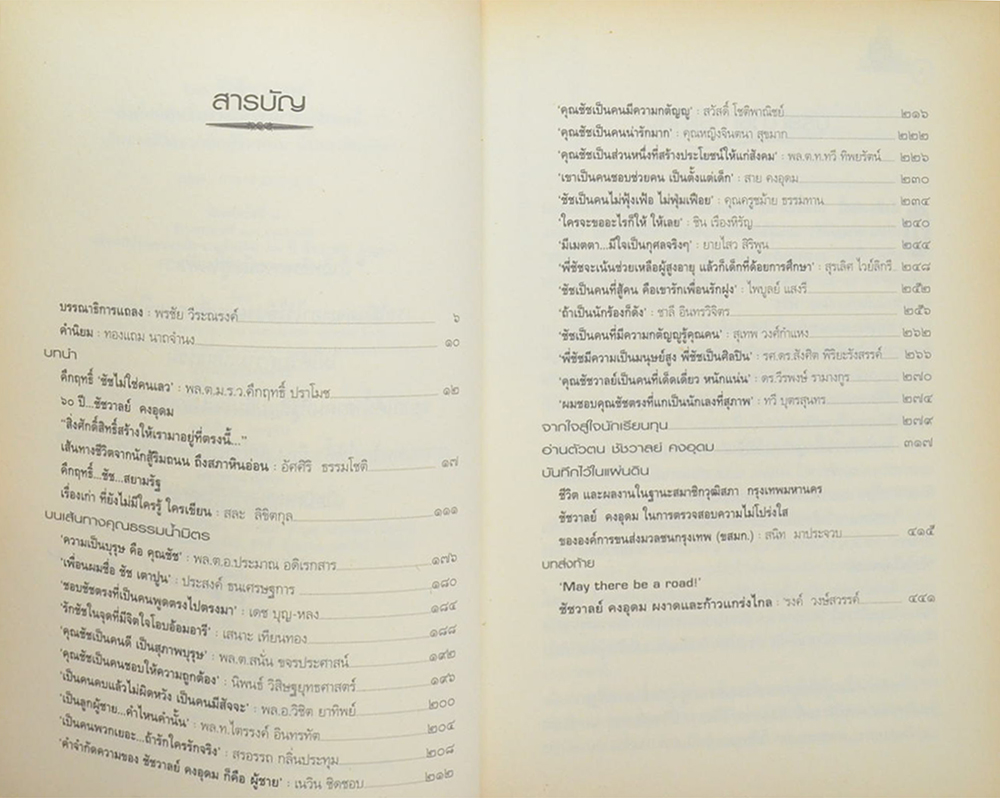 สารบัญ
บรรณาธิการแถลง : พรชัย วีระณรงค์ ๖
คำนิยม : ทองแถม นาถจำนง ๑๐
บทนำ
คึกฤทธิ์ 'ชัชไม่ใช่คนเลว' : พล.ต.ม.ร.ว.คึกฤทธิ์ ปราโมช ๑๒
๖๐ ปี...ชัชวาลย์ คงอุดม
"สิ่งศักดิ์สิทธิ์สร้างให้เรามาอยู่ที่ตรงนี้..."
เส้นทางชีวิตจากนักสู้ริมถนน ถึงสภาหินอ่อน : อัศศิริ ธรรมโชติ ๑๗
คึกฤทธิ์...ชัช...สยามรัฐ
เรื่องเก่า ที่ยังไม่มีใครรู้ ใครเขียน : สละ ลิขิตกุล ๑๑๑
บนเส้นทางคุณธรรมน้ำมิตร
'ความเป็นบุรุษ คือ คุณชัช' : พล.ต.อ.ประมาณ อดิเรกสาร ๑๗๖
'เพื่อนผมชื่อ ชัช เตาปูน' : ประสงค์ ธนเศรษฐการ ๑๘๐
'ชอบชัชตรงที่เป็นคนพูดตรงไปตรงมา' : เดช บุญ-หลง ๑๘๔
'รักชัชในจุดที่มีจิตใจโอบอ้อมอารี' : เสนาะ เทียนทอง ๑๘๘
'คุณชัชเป็นคนดี เป็นสุภาพบุรุษ' : พล.ต.สนั่น ขจรประศาสน์ ๑๙๒
'คุณชัชเป็นคนชอบให้ความถูกต้อง' : นิพนธ์ วิสิษฐยุทธศาสตร์ ๑๙๖
'เป็นคนคบแล้วไม่ผิดหวัง เป็นคนมีสัจจะ' : พล.อ.วิชิต ยาทิพย์ ๒๐๐
'เป็นลูกผู้ชาย...คำไหนคำนั้น' : พล.ท.ไตรรงค์ อินทรทัต ๒๐๔
'เป็นคนพวกเยอะ...ถ้ารักใครรักจริง' : สรอรรถ กลิ่นประทุม ๒๐๘
'คำจำกัดความของ ชัชวาลย์ คงอุดม ก็คือ ผู้ชาย' : เนวิน ชิดชอบ ๒๑๒
'คุณชัชเป็นคนมีความกตัญญู' : สวัสดิ์ โชติพาณิชย์ ๒๑๖
'คุณชัชเป็นคนน่ารักมาก' : คุณหญิงจินตนา สุขมาก ๒๒๒
'คุณชัชเป็นส่วนหนึ่งที่สร้างประโยชน์ให้แก่สังคม' : พล.ต.ท.ทวี ทิพยรัตน์ ๒๒๖
'เขาเป็นคนชอบช่วยคน เป็นตั้งแต่เด็ก' : สาย คงอุดม ๒๓๐
'ชัชเป็นคนไม่ฟุ้งเฟ้อ ไม่ฟุ่มเฟือย' : คุณครูชม้าย ธรรมทาน ๒๓๔
'ใครจะขออะไรก็ให้ ให้เลย' : ชิน เรืองหิรัญ ๒๔๐
'มีเมตตา...มีใจเป็นกุศลจริงๆ' : ยายไสว สิริพูน ๒๔๔
'พี่ชัชจะเน้นช่วยเหลือผู้สูงอายุ แล้วก็เด็กที่ด้อยการศึกษา' : สุรเลิศ ไวย์ลิกรี ๒๔๘
'ชัชเป็นคนที่สู้คน คือเขารักเพื่อนรักฝูง' : ไพบูลย์ แสงรี ๒๕๒
'ถ้าเป็นนักร้องก็ดัง' : ชาลี อินทรวิจิตร ๒๕๖
'ชัชเป็นคนที่มีความกตัญญูรู้คุณคน' : สุเทพ วงศ์กำแหง ๒๖๒
'พี่ชัชมีความเป็นมนุษย์สูง พี่ชัชเป็นศิลปิน' : รศ.ดร.สังศิต พิริยะรังสรรค์ ๒๖๖
'คุณชัชวาลย์เป็นคนที่เด็ดเดี่ยว หนักแน่น' : ดร.วีรพงษ์ รามางกูร ๒๗๐
'ผมชอบคุณชัชตรงที่แกเป็นนักเลงที่สุภาพ' : ทวี บุตรสุนทร ๒๗๔
จากใจสู่ใจนักเรียนทุน ๒๗๙
อ่านตัวตน ชัชวาลย์ คงอุดม ๓๑๗
บันทึกไว้ในแผ่นดิน
ชีวิต และผลงานในฐานะสมาชิกวุฒิสภา กรุงเทพมหานคร
ชัชวาลย์ คงอุดม ในการตรวจสอบความไม่โปร่งใส
ขององค์การขนส่งมวลชนกรุงเทพ (ขสมก.) : สนิท มาประจวบ ๔๑๕
บทส่งท้าย
'May there be a road!'
ชัชวาลย์ คงอุดม ผงาดและก้าวแกร่งไกล : 'รงค์ วงษ์สวรรค์ ๔๔๑